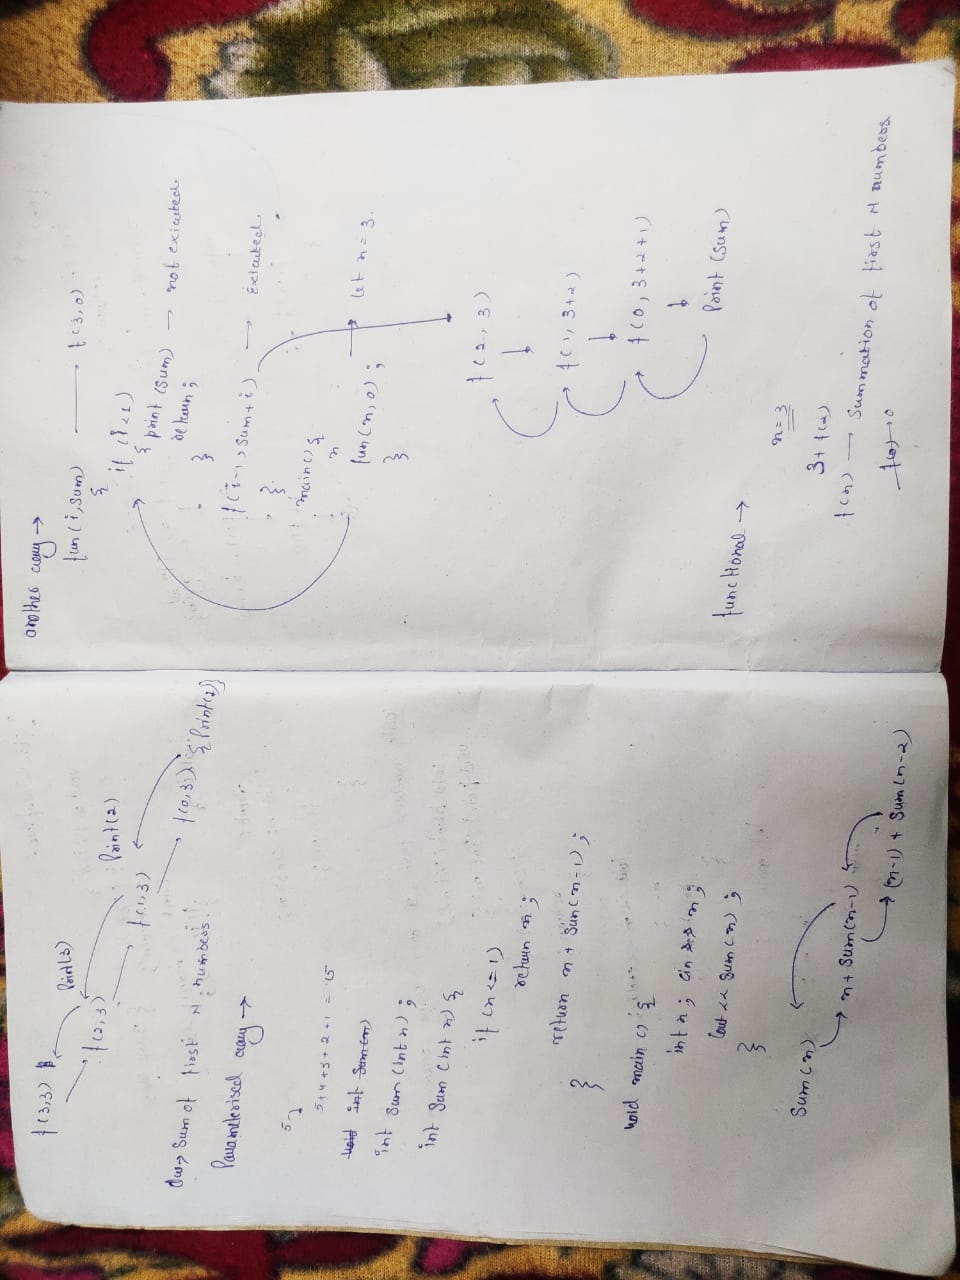 f(3,3)
Print(3)
f(2,3)
Print(2)
f(1,3)
f(0,3) { Print(1)}
Que> Sum of first N numbers.
Parameterised way →
5,
5+4+3+2+1 = 15
void int Sum(n)
int Sum(int n);
int Sum(int n) {
if (n<=1)
return n;
return n + Sum(n-1);
}
void main() {
int n; cin >> n;
Cout << Sum(n);
}
Sum(n)
n + Sum(n-1)
(n-1) + Sum(n-2)
another way →
fun(i, Sum) → f(3,0)
{
if (i<1)
{ print(Sum) → not exicuted.
return;
}
f(i-1, Sum+i) → Exicuted.
}
main() {
n
fun(n,0); → let n=3.
}
f(2,3)
↓
f(1,3+2)
↓
f(0,3+2+1)
↓
Print(Sum)
functional →
n=3
3+f(2)
f(n) → Summation of first N numbers
f(0)→0